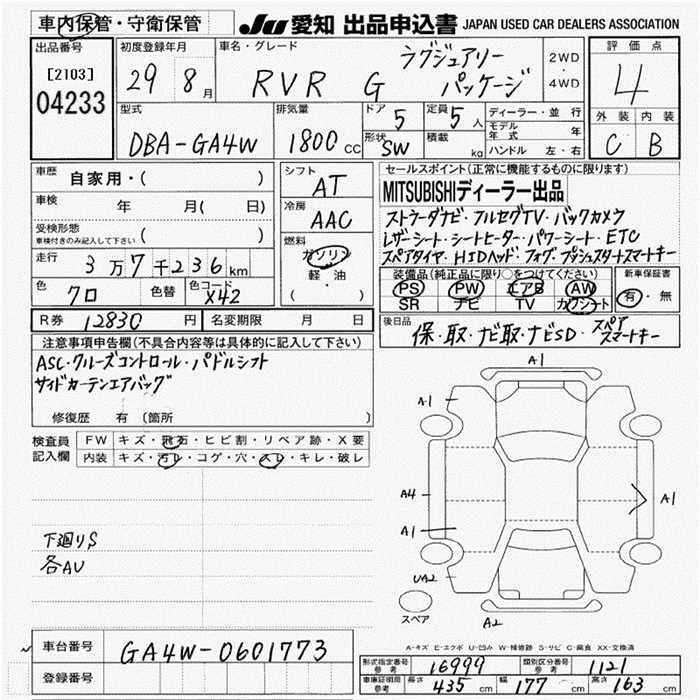 車内保管・守衛保管
JU 愛知 出品申込書 JAPAN USED CAR DEALERS ASSOCIATION
出品番号
[2103]
04233
初度登録年月
29 8月
車名・グレード
RVR G ラグジュアリーパッケージ
2WD・4WD
評価点
4
外装 内装
C B
型式
DBA-GA4W
排気量
1800 CC
ドア 5
形状 SW
定員 5 人
積載 kg
ディーラー・並行
モデル年式 年
ハンドル 左・右
車歴 自家用・( )
車検 年 月( 日)
受検形態
車検付きのみ記入して下さい ( )
走行 3万7千236km
色 クロ 色替 色コード X42
シフト AT
冷房 AAC
燃料 ガソリン
軽・油
( )
R券 12830 円 名変期限 月 日
セールスポイント(正常に機能するものに限ります)
MITSUBISHIディーラー出品
ストラーダナビ・フルセグTV・バックカメラ
レザーシート・シートヒーター・パワーシート・ETC
スペアタイヤ・HIDヘッド・フォグ・プッシュスタートスマートキー
装備品(純正品に限り○をつけてください)
PS PW エアB AW
SR ナビ TV カワシート
新車保証書
有・無
後日品 保・取・ナビ取・ナビSD・スペアスマートキー
注意事項申告欄(不具合内容等は具体的に記入して下さい)
ASC・クルーズコントロール・パドルシフト
サイドカーテンエアバッグ
修復歴 有 (箇所 )
検査員記入欄
FW キズ・飛石・ヒビ割・リペア跡・X要
内装 キズ・汚れ・コゲ・穴・スレ・キレ・破レ
下廻りS
各AU
A1
A1
A4
A1
A1
UA2
A2
スペア
A-キズ E-エクボ U-凹み W-補修跡 S-サビ C-腐食 XX-交換済
車台番号 GA4W-0601773
登録番号
形式指定番号 参考 16999 類別区分番号 参考 1121
車庫証明用 参考 長さ 435 cm 幅 177 cm 高さ 163 cm